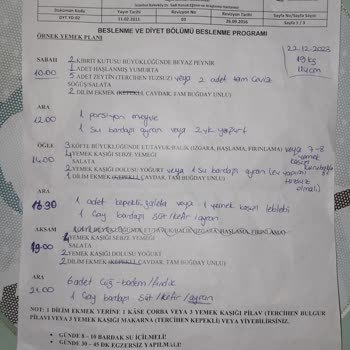 Doküman Kodu
Yayın Tarihi
Revizyon No
Revizyon Tarihi
Sayfa No/Sayfa Sayısı
DYT.FO.02
11.02.2021
00
Sayfa 1 / 9
BESLENME VE DİYET BÖLÜMÜ BESLENME PROGRAMI
ÖRNEK YEMEK PLANI
22.12.2023
19 kg
114 cm
SABAH
10.00
2 KİBRİT KUTUSU BÜYÜKLÜĞÜNDE BEYAZ PEYNİR
1 ADET HAŞLANMIŞ YUMURTA
5 ADET ZEYTİN (TERCİHEN TUZSUZ) veya 2 adet tam ceviz
SÖĞÜŞ/SALATA
2 DİLİM EKMEK (KEPEKLİ, ÇAVDAR, TAM BUĞDAY UNLU)
ARA
12.00
1 porsiyon meyve
1 su bardağı ayran veya 2 yk yoğurt
ÖĞLE
14.00
3 KÖFTE BÜYÜKLÜĞÜNDE ET/TAVUK/BALIK (IZGARA, HAŞLAMA, FIRINLAMA) veya 7-8 yemek kaşığı
4 YEMEK KAŞIĞI SEBZE YEMEĞİ
SALATA
2 YEMEK KAŞIĞI DOLUSU YOĞURT veya 1 su bardağı ayran (ev yapımı
1 DİLİM EKMEK (KEPEKLİ, ÇAVDAR, TAM BUĞDAY UNLU)
olmalı)
ARA
16.30
1 adet kepekli galeta veya 1 yemek kaşığı leblebi
1 çay bardağı süt/kefir/ayran
AKŞAM
19.00
4 YEMEK KAŞIĞI SEBZE YEMEĞİ
SALATA
2 YEMEK KAŞIĞI DOLUSU YOĞURT
2 DİLİM EKMEK (KEPEKLİ, ÇAVDAR, TAM BUĞDAY UNLU)
ARA
21.00
6 adet çiğ badem/fındık
1 çay bardağı süt/kefir/ayran
NOT: 1 DİLİM EKMEK YERİNE 1 KASE ÇORBA VEYA 3 YEMEK KAŞIĞI PİLAV (TERCİHEN BULGUR
PİLAVI) VEYA 3 YEMEK KAŞIĞI MAKARNA (TERCİHEN KEPEKLİ) VEYA YİYEBİLİRSİNİZ.
• GÜNDE 8 – 10 BARDAK SU İÇİLMELİ!
• GÜNDE 30 – 45 DK EGZERSİZ YAPILMALI!